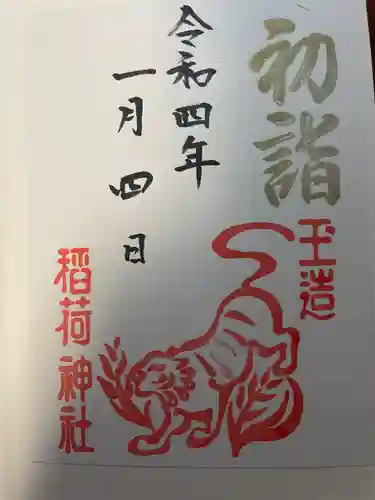 初詣
玉造
令和四年
一月四日
稲荷神社